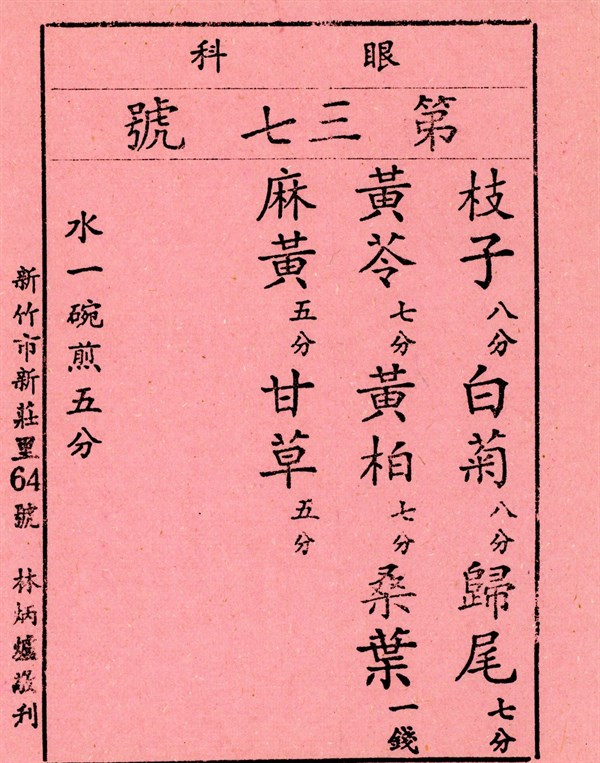 眼科
第三七號
枝子八分白菊八分歸尾七分
黃苓七分黃柏七分桑葉一錢
麻黃五分甘草五分
水一碗煎五分
新竹市新莊里64號 林炳爐刊